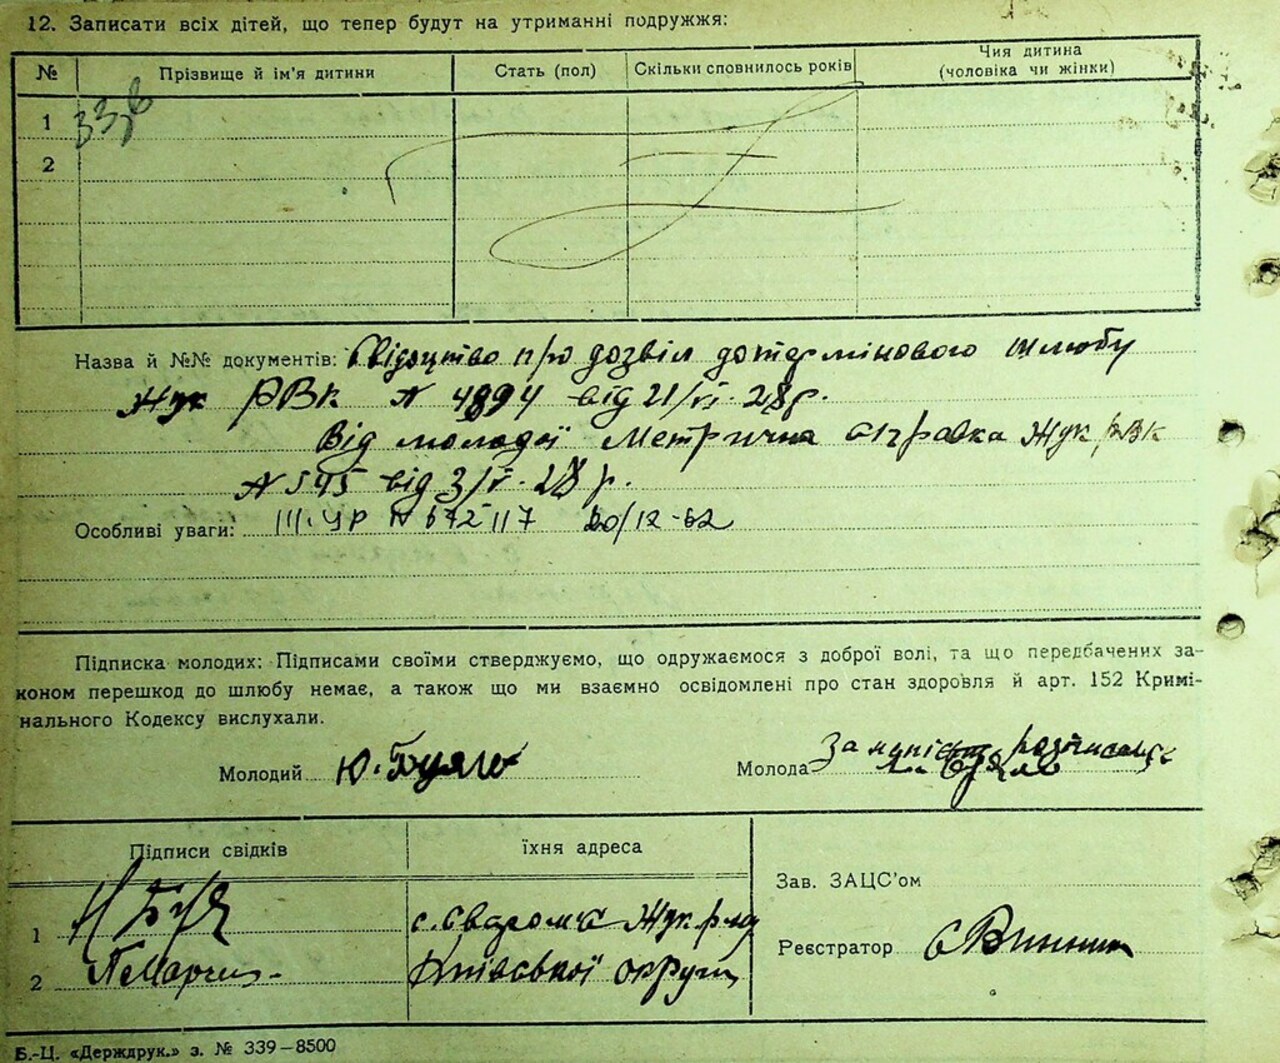 12. Записати всіх дітей, що тепер будут на утриманні подружжя:
№ Прізвище й ім'я дитини Стать (пол) Скільки сповнилось років Чия дитина
(чоловіка чи жінки)
1
2
Назва й №№ документів: Свідоцтво про дозвіл дотермінового шлюбу
Жук РВК N 4894 від 21/VI-28 р.
Від молодої Метрична справка Жук РВК
N 545 від 3/V-28 р.
Особливі уваги: III-УР N 672117 20/12-62
Підписка молодих: Підписами своїми стверджуємо, що одружаємося з доброї волі, та що передбачених за-
коном перешкод до шлюбу немає, а також що ми взаємно освідомлені про стан здоровля й арт. 152 Кримі-
нального Кодексу вислухали.
Молодий Ю.
Молода За
Підписи свідків їхня адреса
Зав. ЗАЦС'ом
1 с. Сваромє Жук р-ну
Реєстратор
2 Київської округи
Б.-Ц. «Держдрук.» з. № 339—8500